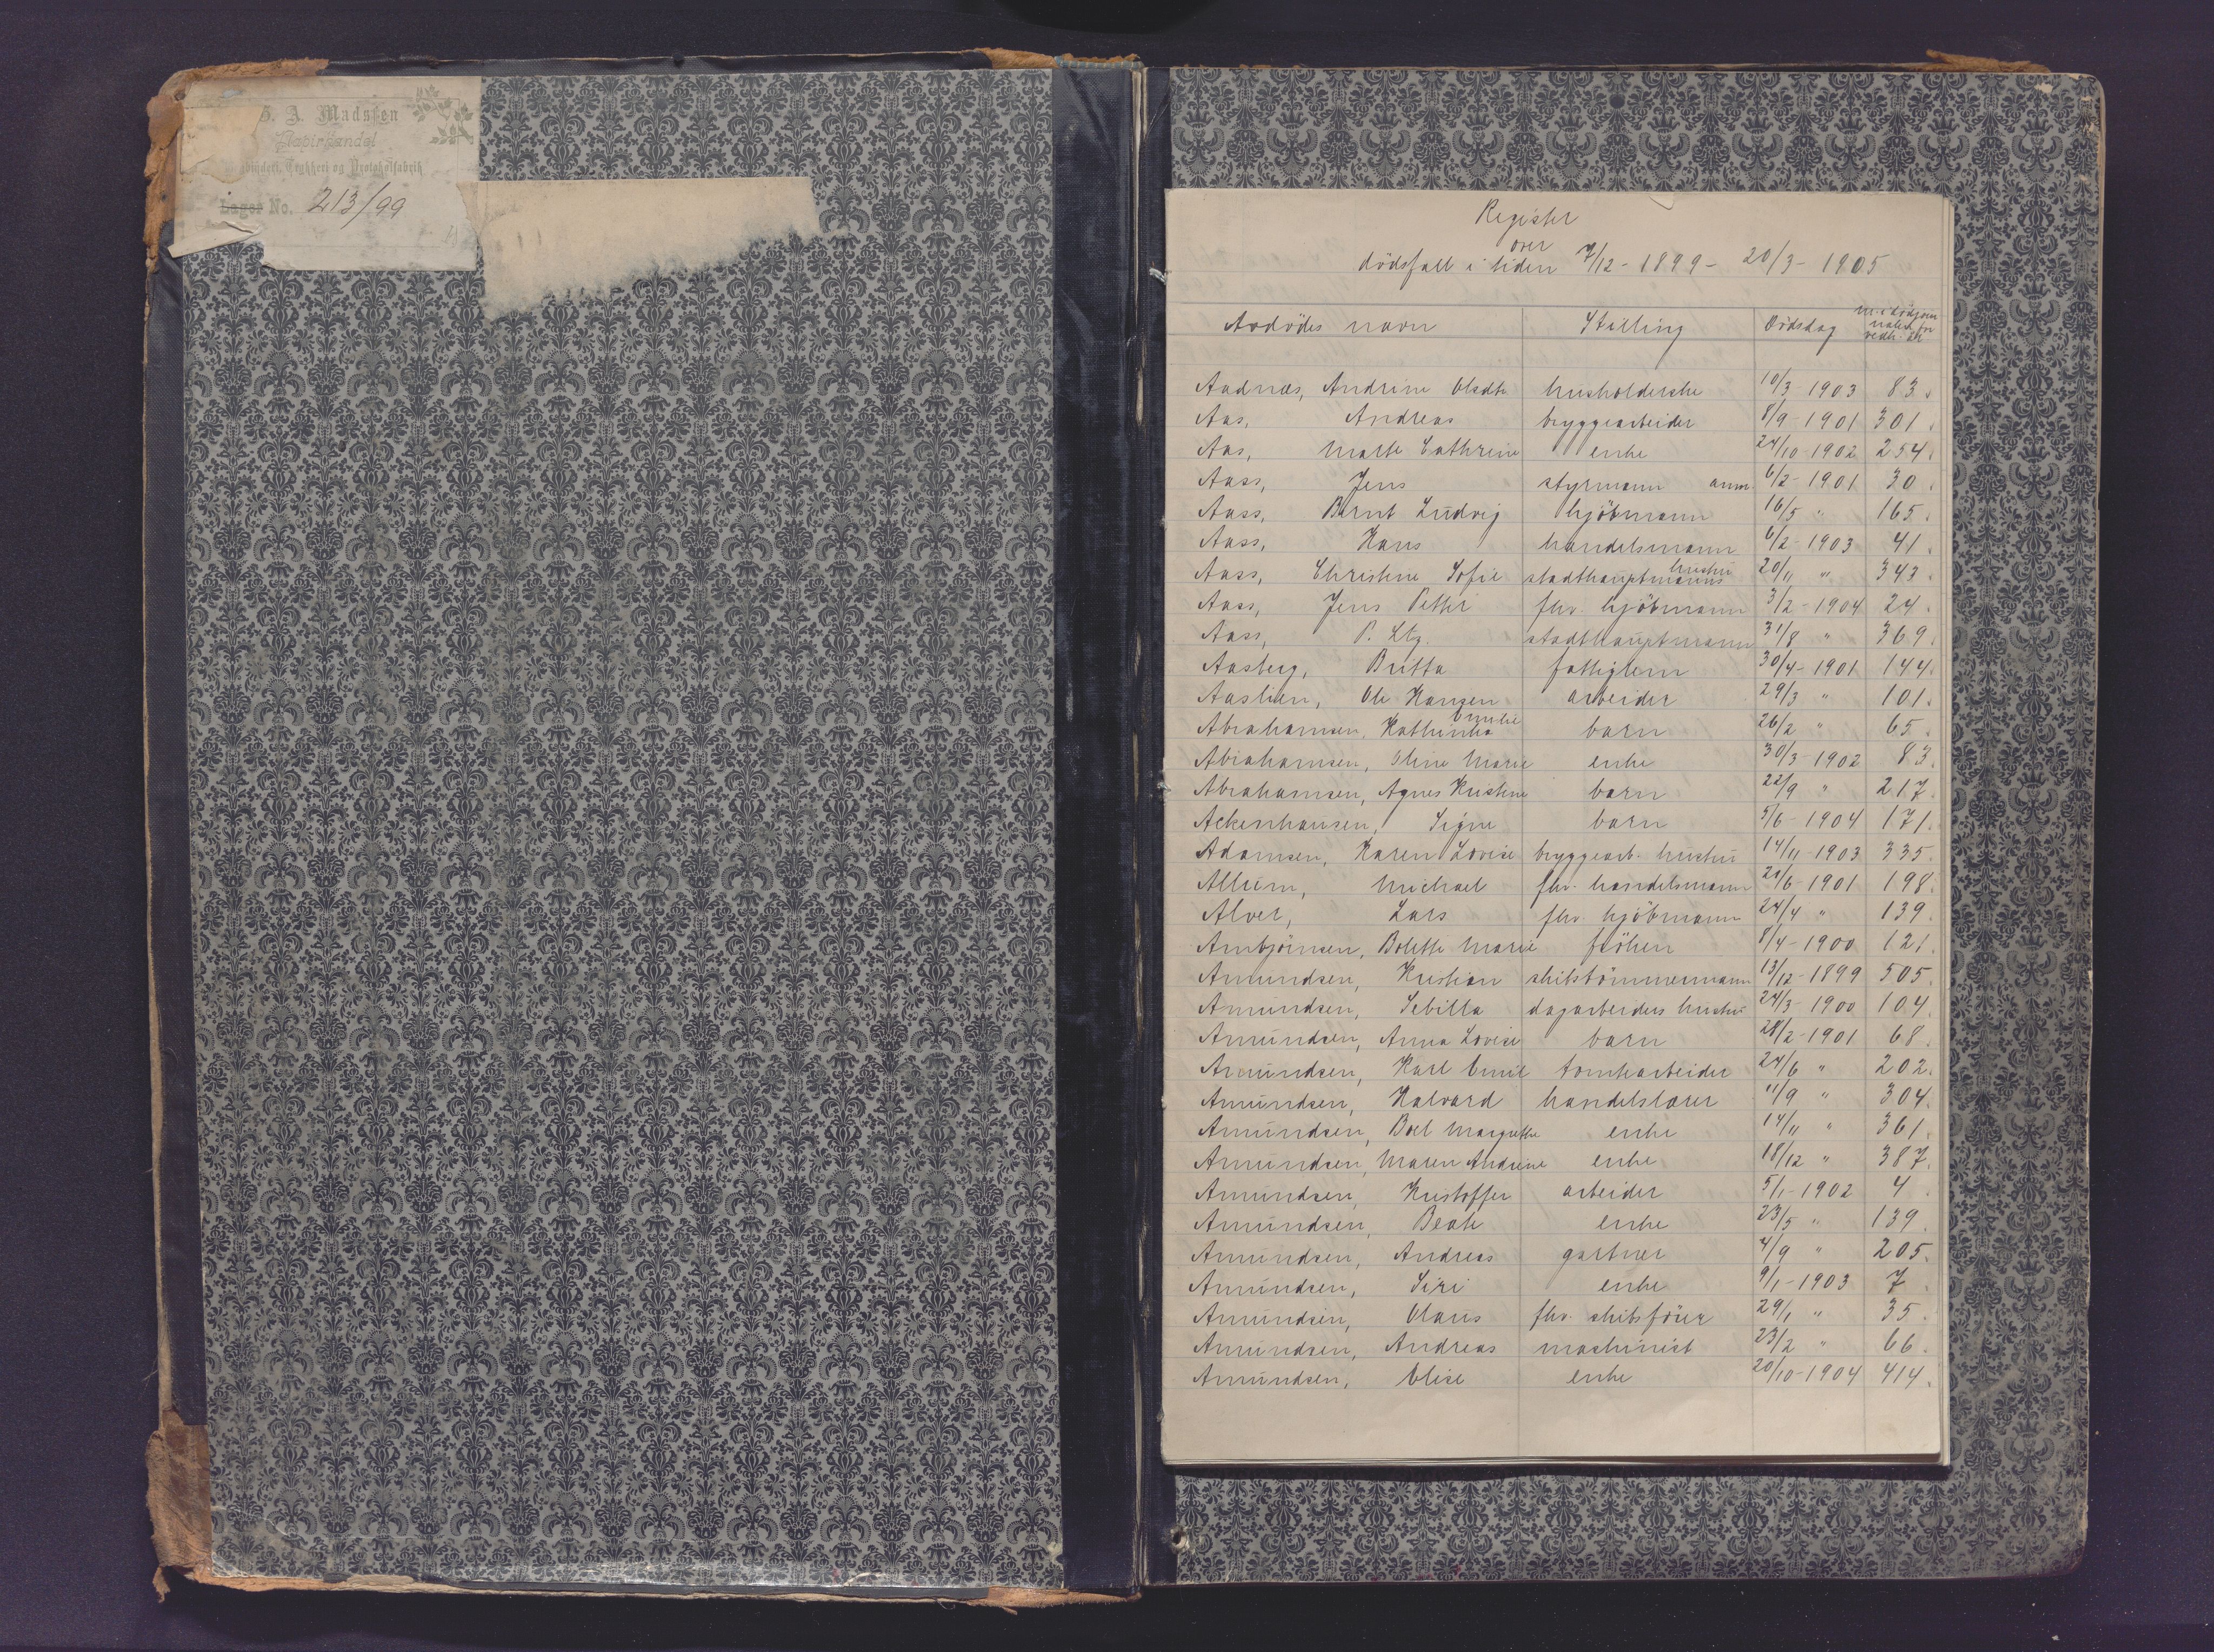 A. Madssen
Papirhandel
Trykkeri og Protokolfabrik
Lager No. 213/99
Register
over
dödsfall i tiden 7/12 - 1899 - 20/3 - 1905
Avdödes navn Stilling Dödsdag
Aadnæs, Andrine Olsdtr husholderske 10/3 1903 83.
Aas, Andreas bryggearbeider 8/9 - 1901 301.
Aas, Marte Cathrine enke 24/10 1902 254.
Aass, Jens styrmann anm. 6/2 - 1901 30.
Aass, Bernt Ludvig kjöbmann 16/5 " 165.
Aass, Hans handelsmann 6/2 - 1903 41.
Aass, Christine Sofie stadthauptmanns hustru 20/11 " 343.
Aass, Jens Petter fhv. kjöbmann 3/2 - 1904 24.
Aass, P. Ltz. stadthauptmann 31/8 " 369.
Aasberg, Britta fattiglem 30/4 - 1901 144.
Aaslien, Ole Hansen arbeider 29/3 " 101.
Abrahamsen, Kathinka Emilie barn 26/2 " 65.
Abrahamsen, Oline Marie enke 30/3 - 1902 83.
Abrahamsen, Agnes Kristine barn 22/9 " 217.
Ackenhausen, Signe barn 5/6 - 1904 171.
Adamsen, Karen Lovise bryggearb. hustru 14/11 - 1903 335.
Allum, Michael fhv. handelsmann 20/6 - 1901 198.
Alver, Lars fhv. kjöbmann 24/4 " 139.
Ambjörnsen, Bolette Marie fröken 8/4 - 1900 121.
Amundsen, Kristian skibstömmermann 13/12 - 1899 505.
Amundsen, Sebilla dagarbeiders hustru 24/3 - 1900 104.
Amundsen, Anna Lovise barn 28/2 - 1901 68.
Amundsen, Karl Emil tomtearbeider 24/6 " 202.
Amundsen, Halvard handelslærer 11/9 " 304.
Amundsen, Boel Margrethe enke 14/11 " 361.
Amundsen, Maren Andrine enke 18/12 " 387.
Amundsen, Kristoffer arbeider 5/1 - 1902 4
Amundsen, Beate enke 23/5 " 139.
Amundsen, Andreas gartner 4/9 " 205.
Amundsen, Siri enke 9/1 - 1903 7
Amundsen, Olaus fhv. skibsförer 29/1 " 35.
Amundsen, Andreas maskinist 23/2 " 66.
Amundsen, Elise enke 20/10 - 1904 414.